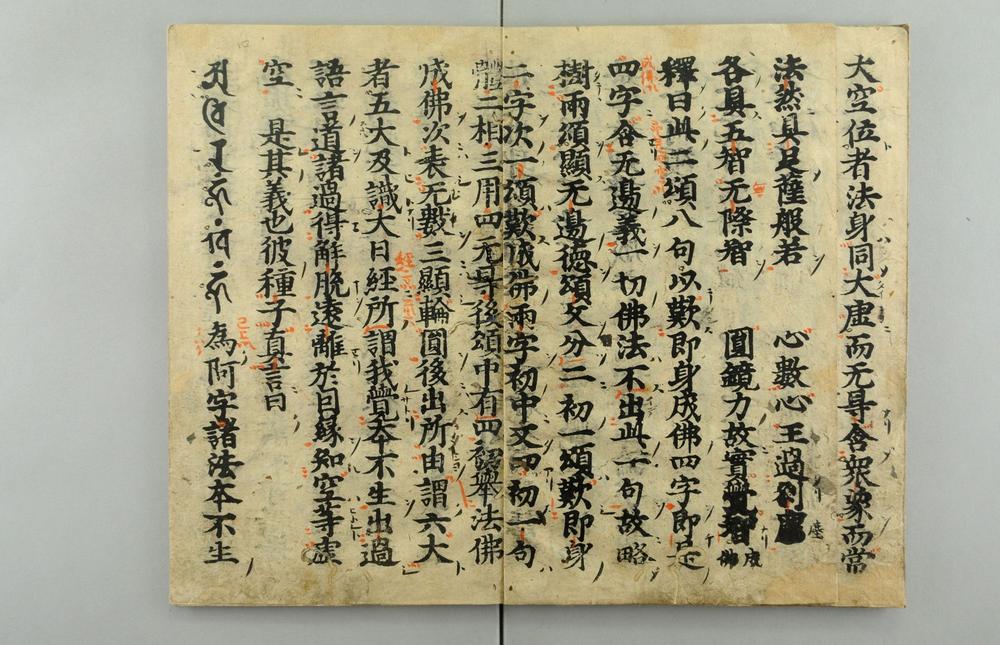 大空位者法身同大虚而无㝵含衆象而常
法然具足薩般若　心數心王過刹塵
各具五智无際智　圓鏡力故實覺智
釋曰此二頌八句以歎即身成佛四字即是
四字含无邊義一切佛法不出此一句故略
樹兩頌顯无邊德頌文分二初一頌歎即身
二字次一頌歎成佛兩字初中又四初一句
體二相三用四无㝵後頌中有四初擧法佛
成佛次表无數三顯輪圓後出所由謂六大
者五大及識大日經所謂我覺本不生出過
語言道諸過得解脱遠離於因縁知空等虚
空　是其義也彼種子真言曰
為阿字諸法本不生